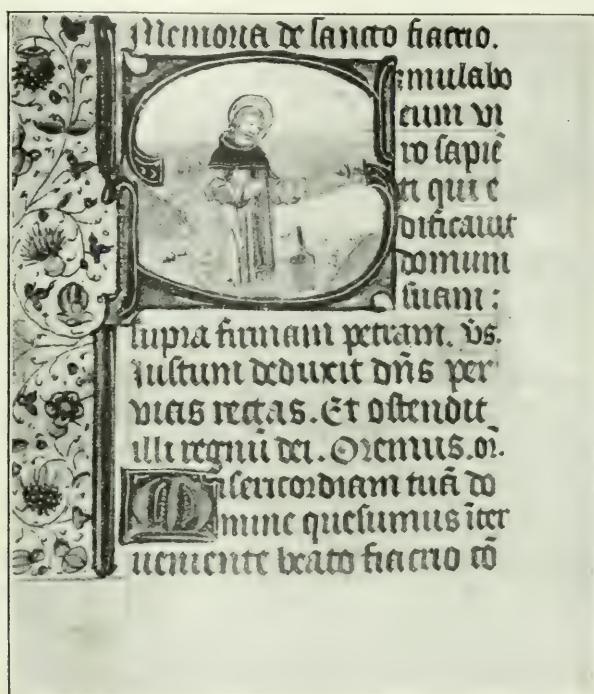 Memoria de sancto fiacrio.
Simulabo
eum vi
ro sapiē
ti qui e
dificauit
domum
suam :
supra firmam petram. v̄s.
Iustum deduxit dn̄s per
vias rectas. Et ostendit
illi regnū dei. Oremus. or̄.
Misericordiam tuā do
mine quesumus īter
ueniente beato fiacrio cō